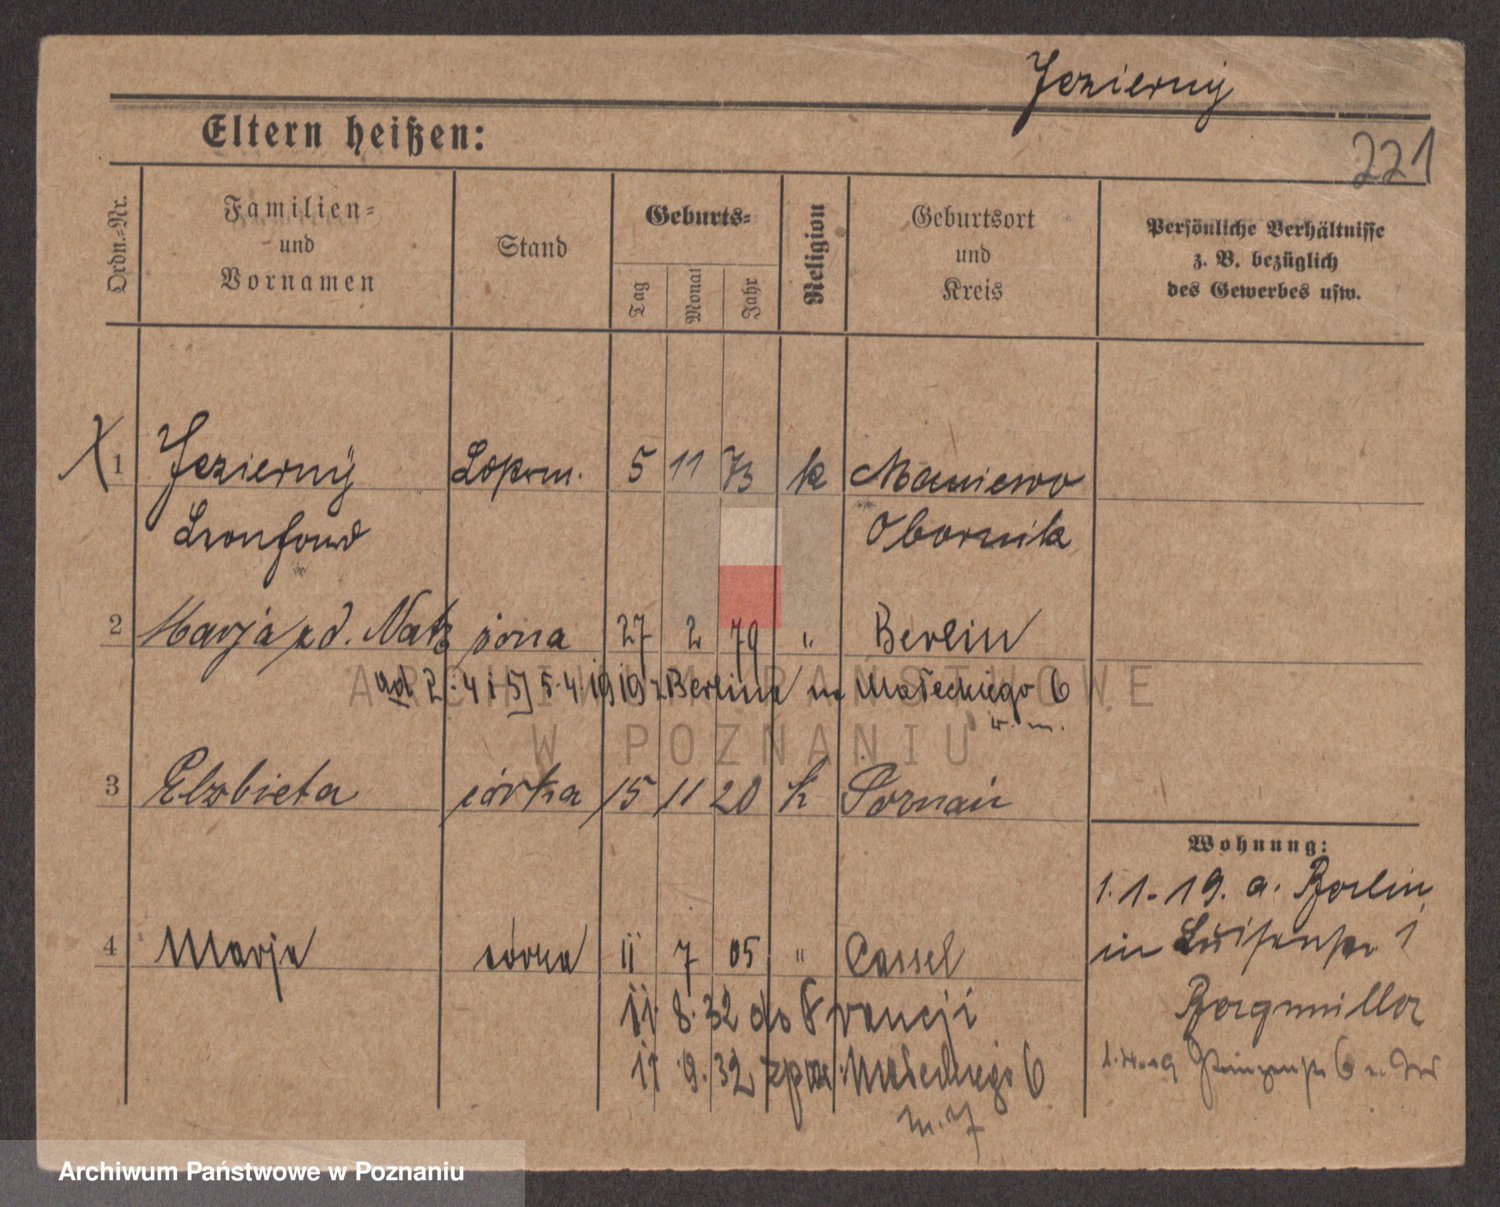 Jezierny
Eltern heißen:
221
Ordn.-Nr.
Familien-
und
Vornamen
Stand
Geburts-
Tag
Monat
Jahr
Religion
Geburtsort
und
Kreis
Persönliche Verhältnisse
z. B. bezüglich
des Gewerbes usw.
X 1 Jezierny 5 11 73 k Maniewo
Obornik
2 Marja zd. Natz żona 27 2 79 " Berlin
ad 2. 4 i 5] 5.4.1919 z Berlina Małeckiego 6
w. m.
3 Elzbieta córka 15 11 20 k Poznań
Wohnung:
1.1.19. a. Berlin
in Luisenstr 1
Bergmiller
4 Marja córka 11 7 05 " Cassel
11. 8. 32 do Francji
17. 9. 32 Małeckiego 6
m. 7
ARCHIWUM PAŃSTWOWE
W POZNANIU
Archiwum Państwowe w Poznaniu